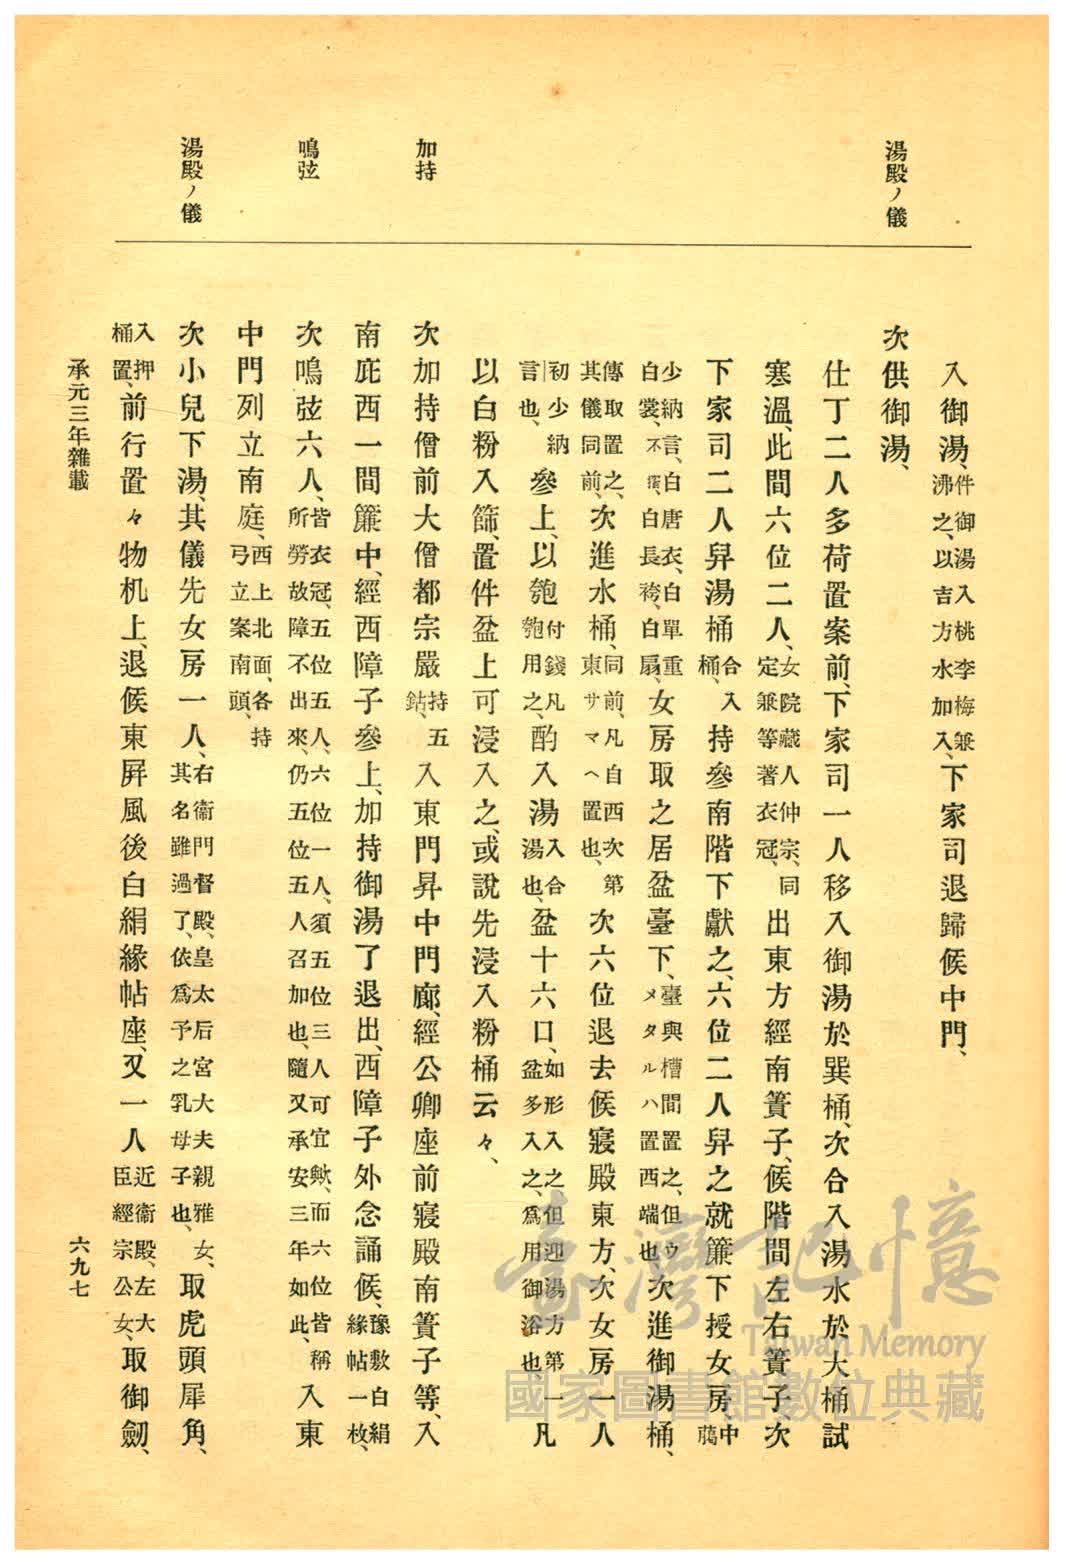 湯殿ノ儀
加持
鳴弦
湯殿ノ儀
入御湯、件御湯入桃李梅兼沸之、以吉方水加入、下家司退歸候中門、
次供御湯、
仕丁二人多荷置案前、下家司一人移入御湯於巽桶、次合入湯水於大桶試
寒溫、此間六位二人、女院藏人仲宗、同定兼等著衣冠、出東方經南簀子、候階間左右簀子、次
下家司二人舁湯桶合入桶、持參南階下獻之、六位二人舁之就簾下授女房、中﨟
少納言、白唐衣、白單重白裳、不裙、白長袴、白扇、女房取之居盆臺下、臺與槽間置之、但ウメタルハ置西端也、次進御湯桶、
傳取置之、其儀同前、次進水桶、同前、凡自西次第東サマヘ置也、次六位退去候寢殿東方、次女房一人
初少納言也、參上、以匏付錢凡匏用之、酌入湯入合湯也、盆十六口、如形入之、但迎湯方第一凡盆多入之、爲用御浴也、
以白粉入篩、置件盆上可浸入之、或說先浸入粉桶云々、
次加持僧前大僧都宗嚴持五鈷、入東門昇中門廊、經公卿座前寢殿南簀子等、入
南庇西一間簾中、經西障子參上、加持御湯了退出、西障子外念誦候、豫敷白絹緣帖一枚、
次鳴弦六人、皆衣冠、五位五人、六位一人、須五位三人可宜歟、而六位皆稱所勞故障不出來、仍五位五人召加也、隨又承安三年如此、入東
中門列立南庭、西上北面、各持弓立案南頭、
次小兒下湯、其儀先女房一人、右衞門督殿、皇太后宮大夫親雅女、其名雖過了、依爲予之乳母子也、取虎頭犀角、
入押桶置、前行置々物机上、退候東屛風後白絹緣帖座、又一人近衞殿、左大臣經宗公女、取御劒、
承元三年雜載
六九七
臺灣記憶
Taiwan Memory
國家圖書館數位典藏